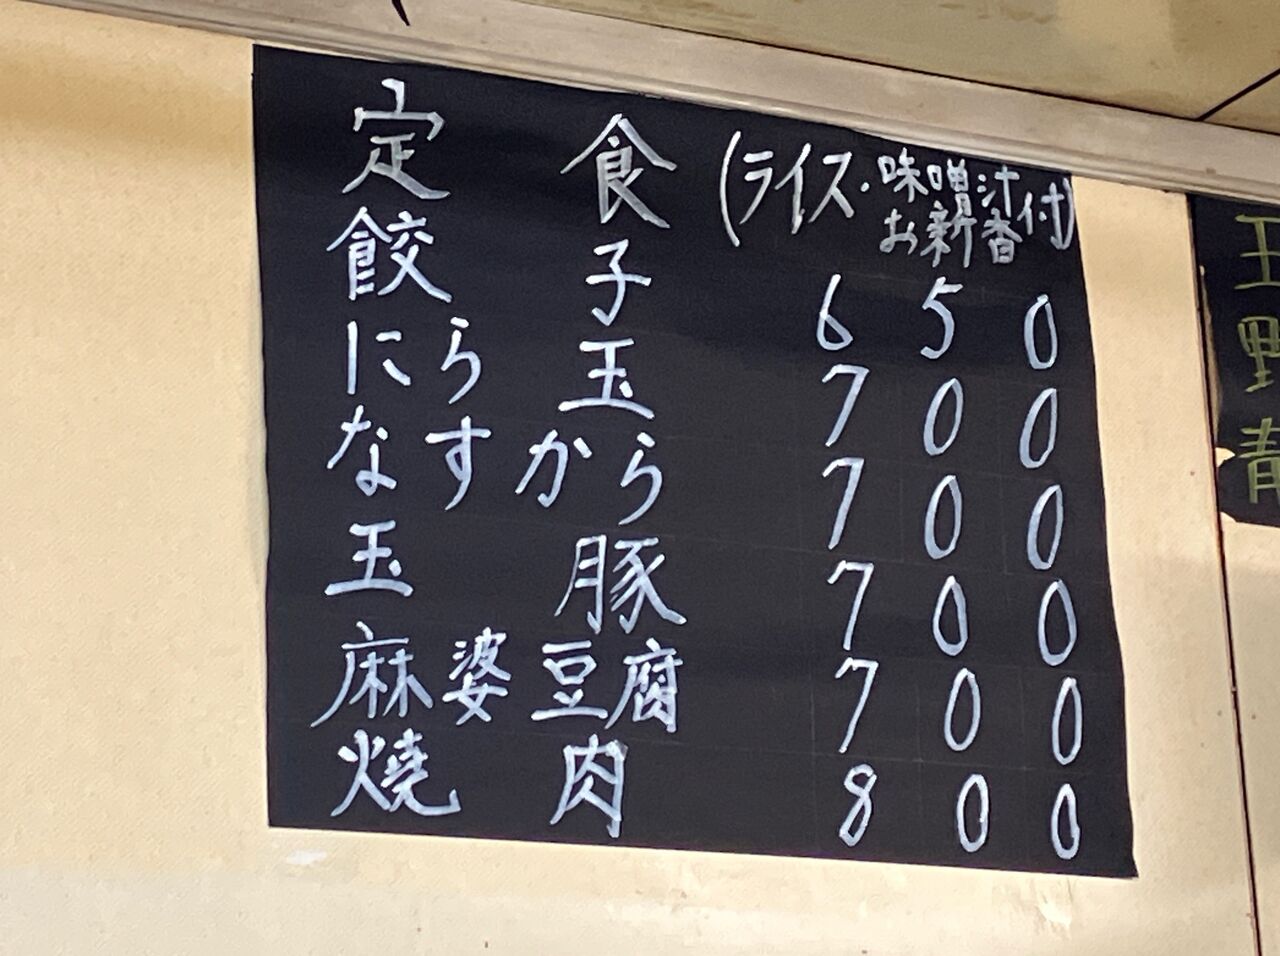 定食(ライス・味噌汁お新香付)
餃子 650
にら玉 700
なすから 700
玉豚 700
麻婆豆腐 700
焼肉 800
野